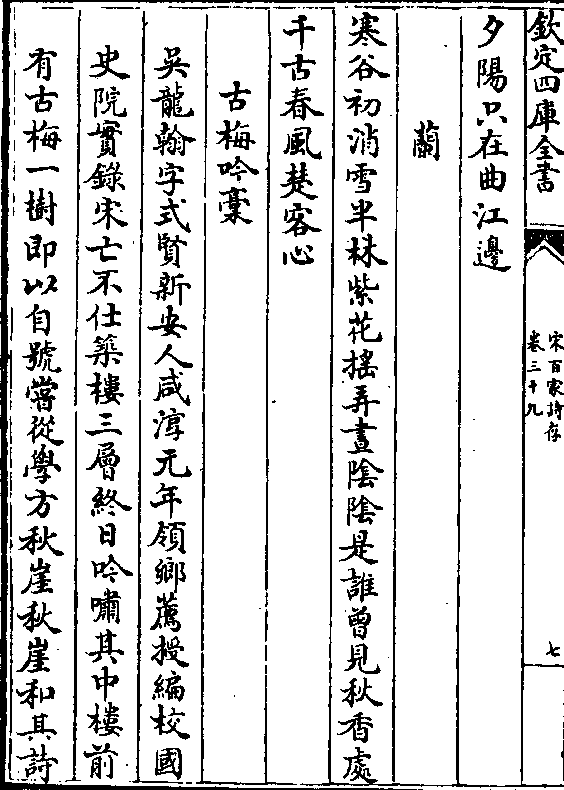 欽定四庫全書
宋百家詩存
卷三十九
七
夕陽只在曲江邊
蘭
寒谷初消雪半林紫花搖弄晝陰陰是誰曾見秋香處
千古春風楚客心
古梅吟稾
吳龍翰字式賢新安人咸淳元年領鄉薦授編校國
史院實錄宋亡不仕築樓三層終日吟嘯其中樓前
有古梅一樹即以自號嘗從學方秋崖秋崖和其詩